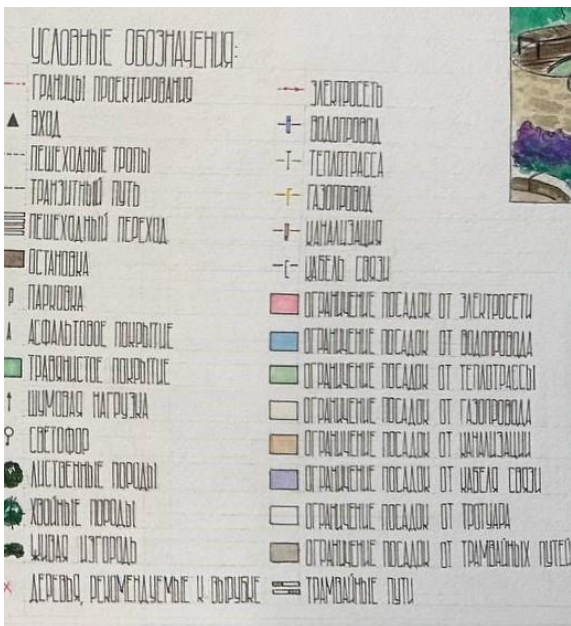 УСЛОВНЫЕ ОБОЗНАЧЕНИЯ:
ГРАНИЦЫ ПРОЕКТИРОВАНИЯ
ВХОД
ПЕШЕХОДНЫЕ ТРОПЫ
ТРАНЗИТНЫЙ ПУТЬ
ПЕШЕХОДНЫЙ ПЕРЕХОД
ОСТАНОВКА
P ПАРКОВКА
А АСФАЛЬТОВОЕ ПОКРЫТИЕ
ТРАВЯНИСТОЕ ПОКРЫТИЕ
ШУМОВАЯ НАГРУЗКА
СВЕТОФОР
ЛИСТВЕННЫЕ ПОРОДЫ
ХВОЙНЫЕ ПОРОДЫ
ЖИВАЯ ИЗГОРОДЬ
ДЕРЕВЬЯ, РЕКОМЕНДУЕМЫЕ К ВЫРУБКЕ
ЭЛЕКТРОСЕТЬ
ВОДОПРОВОД
Т ТЕПЛОТРАССА
Г ГАЗОПРОВОД
КАНАЛИЗАЦИЯ
КАБЕЛЬ СВЯЗИ
ОГРАНИЧЕНИЕ ПОСАДОК ОТ ЭЛЕКТРОСЕТИ
ОГРАНИЧЕНИЕ ПОСАДОК ОТ ВОДОПРОВОДА
ОГРАНИЧЕНИЕ ПОСАДОК ОТ ТЕПЛОТРАССЫ
ОГРАНИЧЕНИЕ ПОСАДОК ОТ ГАЗОПРОВОДА
ОГРАНИЧЕНИЕ ПОСАДОК ОТ КАНАЛИЗАЦИИ
ОГРАНИЧЕНИЕ ПОСАДОК ОТ КАБЕЛЯ СВЯЗИ
ОГРАНИЧЕНИЕ ПОСАДОК ОТ ТРОТУАРА
ОГРАНИЧЕНИЕ ПОСАДОК ОТ ТРАМВАЙНЫХ ПУТЕЙ
ТРАМВАЙНЫЕ ПУТИ